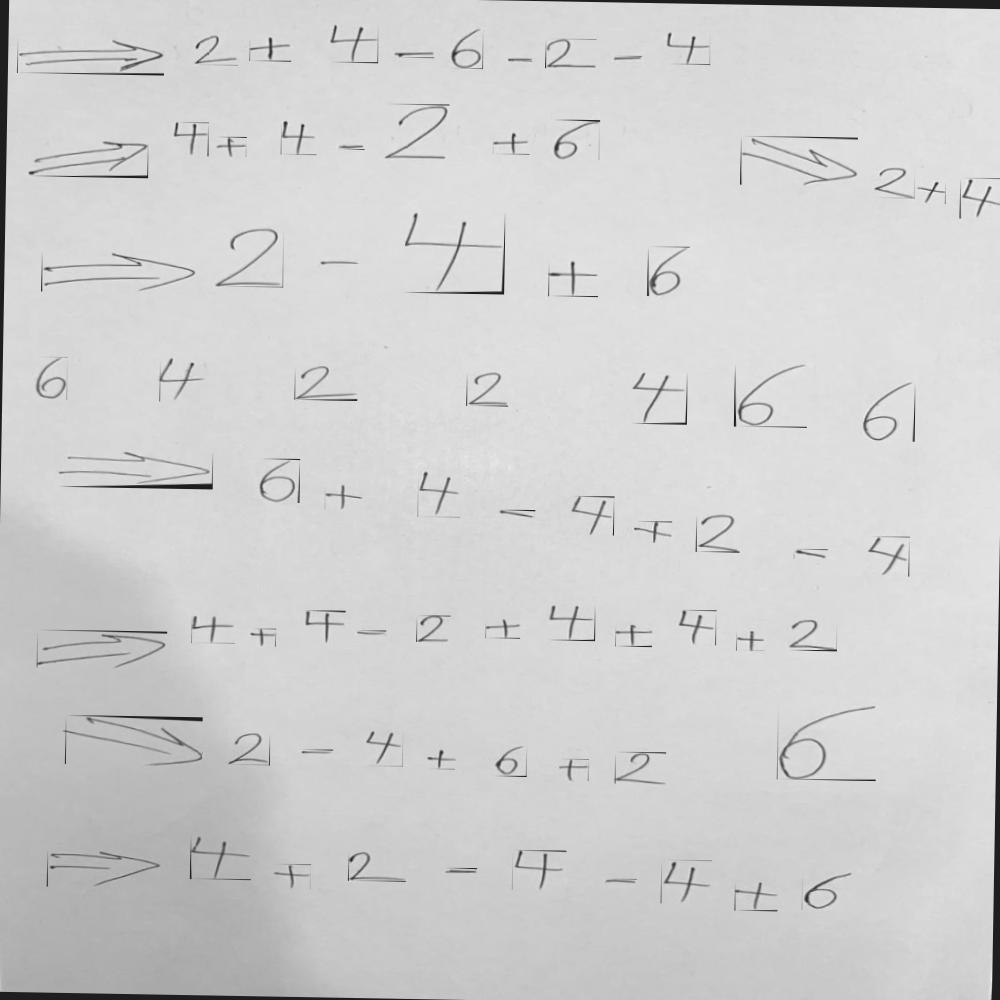 ⇒ 2 + 4 - 6 - 2 - 4
⇒ 4 + 4 - 2 + 6
⇒ 2 + 4
⇒ 2 - 4 + 6
6 4 2 2 4 6 6
⇒ 6 + 4 - 4 + 2 - 4
⇒ 4 + 4 - 2 + 4 + 4 + 2
⇒ 2 - 4 + 6 + 2 6
⇒ 4 + 2 - 4 - 4 + 6